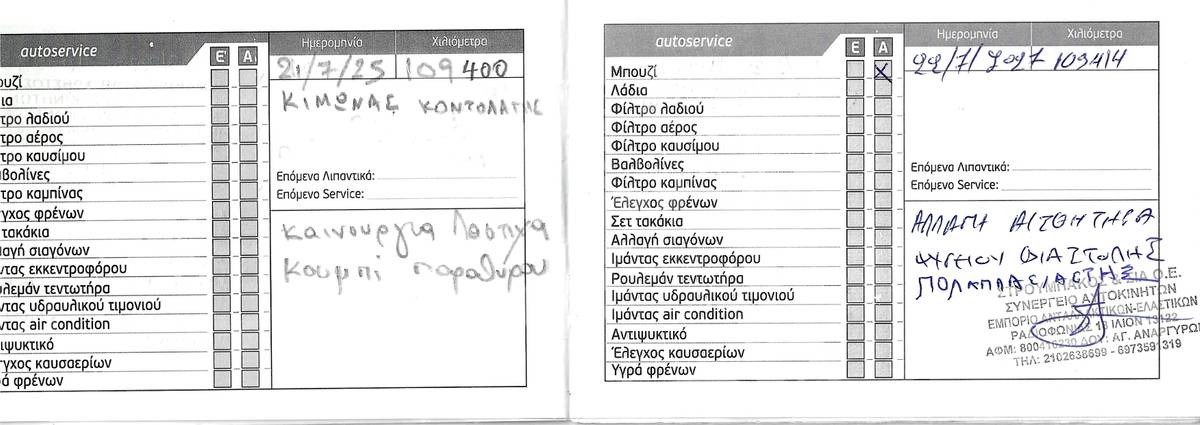 autoservice
Ε Α
Ημερομηνία Χιλιόμετρα
21/7/25 109 400
ΚΙΜΩΝΑΣ
ουζί
ια
τρο λαδιού
τρο αέρος
τρο καυσίμου
βολίνες
τρο καμπίνας
γχος φρένων
τακάκια
αγή σιαγόνων
ντας εκκεντροφόρου
λεμάν τεντωτήρα
ντας υδραυλικού τιμονιού
ντας air condition
ιψυκτικό
γχος καυσαερίων
ρά φρένων
Επόμενα Λιπαντικά:
Επόμενο Service:
καινουργια Λαστιχα
Κουμπι παραθυρου
autoservice
Ε Α
Ημερομηνία Χιλιόμετρα
22/7/2027 109414
Μπουζί X
Λάδια
Φίλτρο λαδιού
Φίλτρο αέρος
Φίλτρο καυσίμου
Βαλβολίνες
Φίλτρο καμπίνας
Έλεγχος φρένων
Σετ τακάκια
Αλλαγή σιαγόνων
Ιμάντας εκκεντροφόρου
Ρουλεμάν τεντωτήρα
Ιμάντας υδραυλικού τιμονιού
Ιμάντας air condition
Αντιψυκτικό
Έλεγχος καυσαερίων
Υγρά φρένων
Επόμενα Λιπαντικά:
Επόμενο Service:
ΑΛΛΑΓΗ ΑΙΣΘΗΤΗΡΑ
ΨΥΓΗΟΥ ΔΙΑΣΤΟΛΗΣ
ΠΟΛΑΠΛΑΣΙΑΣΤΗΣ
ΣΤΡΟΥΜΠΑΚΟΣ & ΣΙΑ Ο.Ε.
ΣΥΝΕΡΓΕΙΟ ΑΥΤΟΚΙΝΗΤΩΝ
ΕΜΠΟΡΙΟ ΑΝΤΑΛΛΑΚΤΙΚΩΝ-ΕΛΑΣΤΙΚΩΝ
ΡΑΔΙΟΦΩΝΙΑΣ 18 ΙΛΙΟΝ 13122
ΑΦΜ: 800416230 ΔΟΥ: ΑΓ. ΑΝΑΡΓΥΡΩΝ
ΤΗΛ: 2102638699 - 6973591319